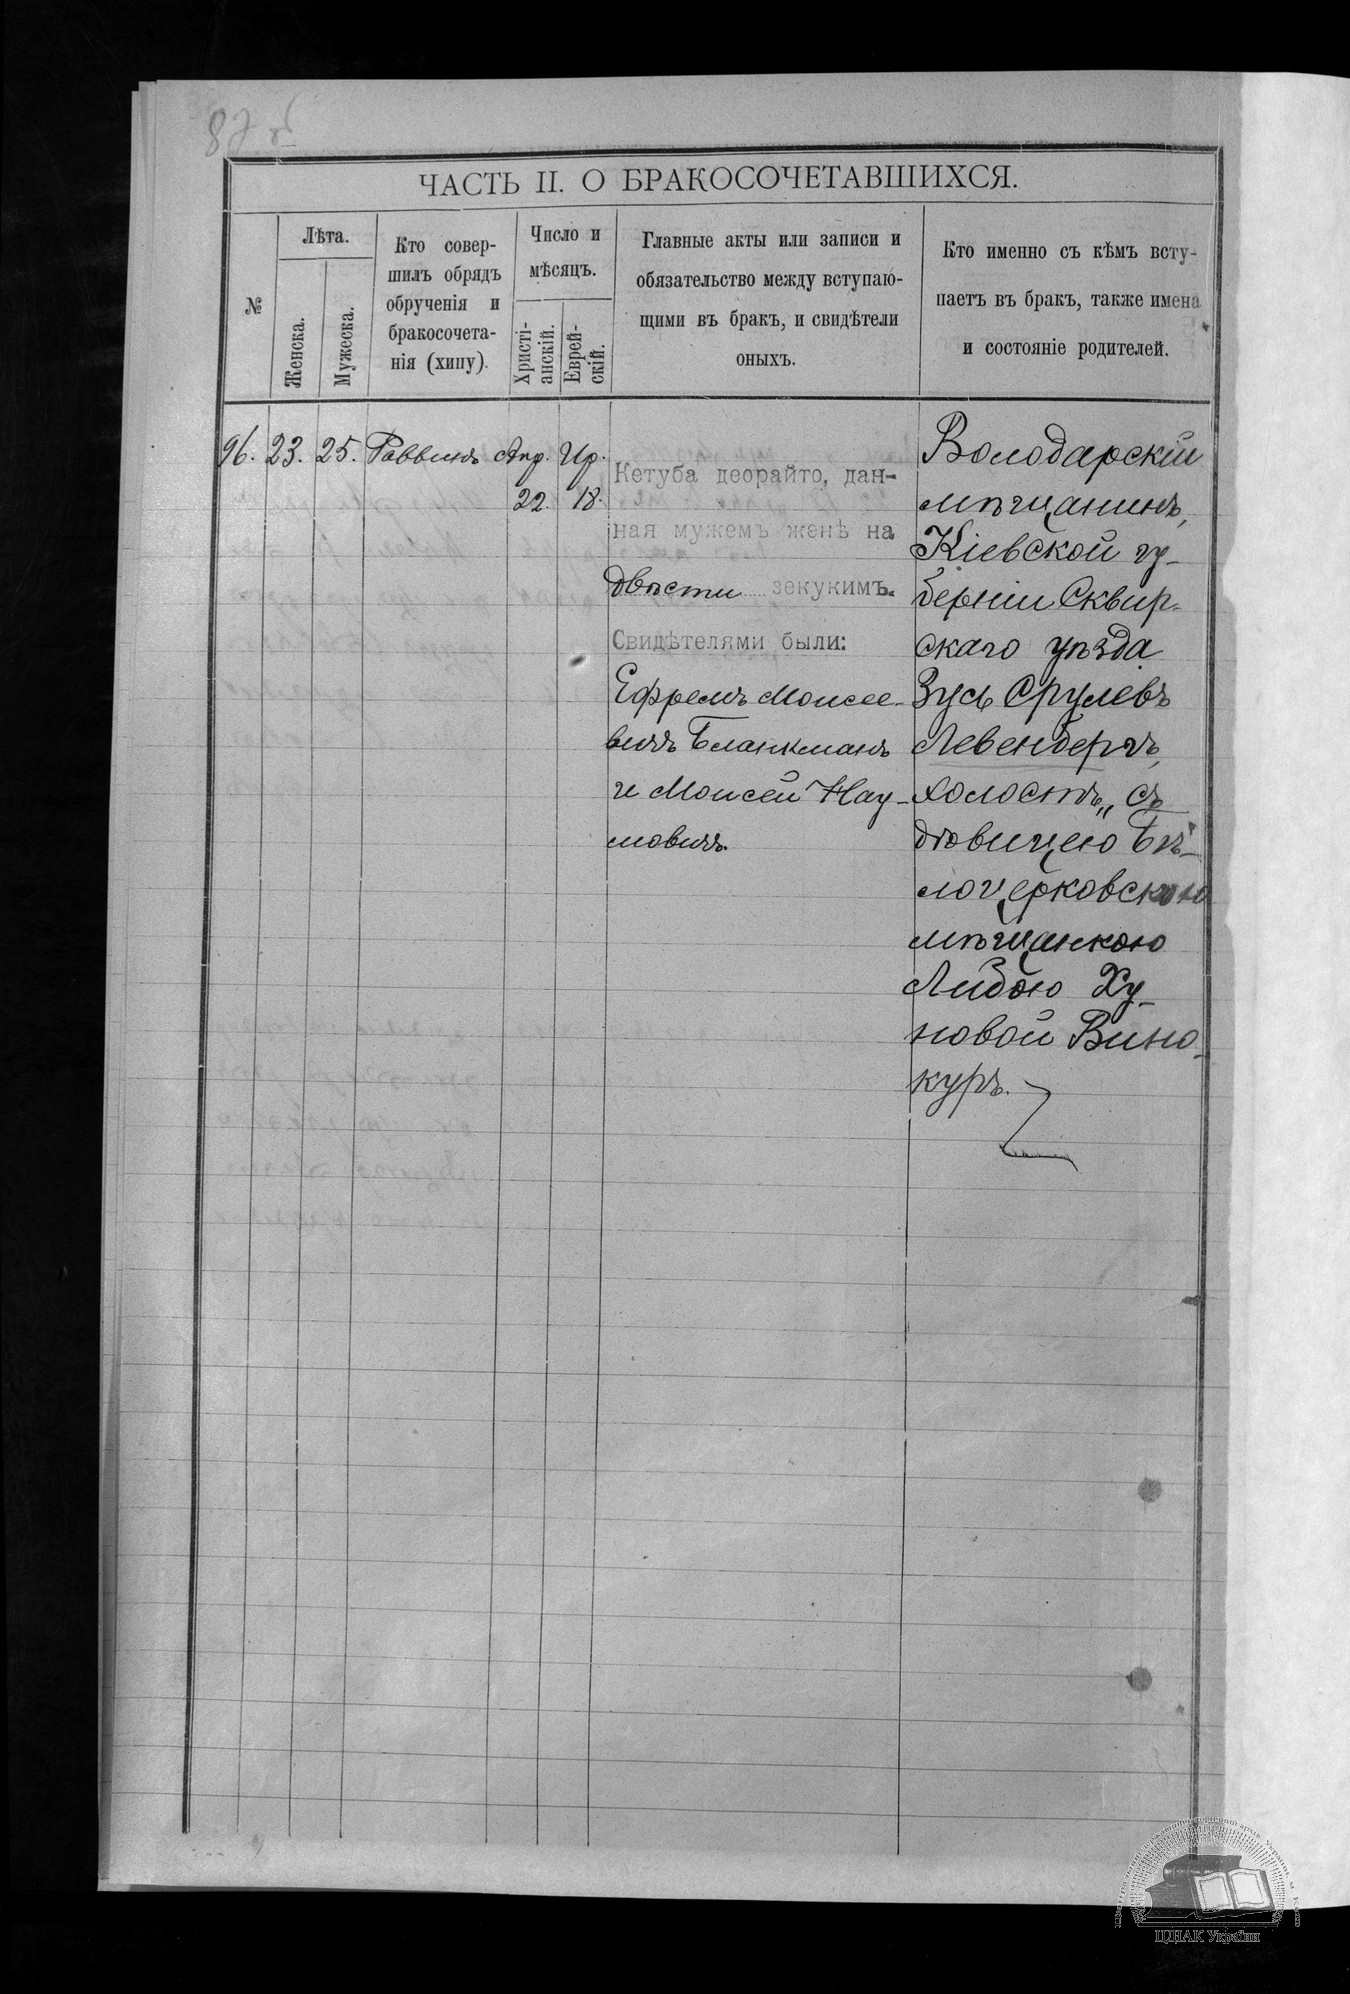 87 об
ЧАСТЬ II. О БРАКОСОЧЕТАВШИХСЯ.
№
Лѣта.
Женска.
Мужеска.
Кто совер-
шилъ обрядъ
обрученія и
бракосочета-
нія (хипу).
Число и
мѣсяцъ.
Христі-
анскій.
Еврей-
скій.
Главные акты или записи и
обязательство между вступаю-
щими въ бракъ, и свидѣтели
оныхъ.
Кто именно съ кѣмъ всту-
паетъ въ бракъ, также имена
и состояніе родителей.
96. 23. 25. Раввинъ Апр. Ир.
22. 18.
Кетуба деорайто, дан-
ная мужемъ женѣ на
двѣсти зекукимъ.
Свидѣтелями были:
Ефремъ Моисее-
вичъ Бланкманъ
и Моисей Нау-
мовичъ.
Володарскій
мѣщанинъ,
Кіевской гу-
берніи Сквир-
скаго уѣзда
Зусь Срулевъ
Левенбергъ,
холостъ, съ
дѣвицею Бѣ-
лоцерковскою
мѣщанкою
Либою Ху-
новой Вино-
куръ.
ЦДІАК України